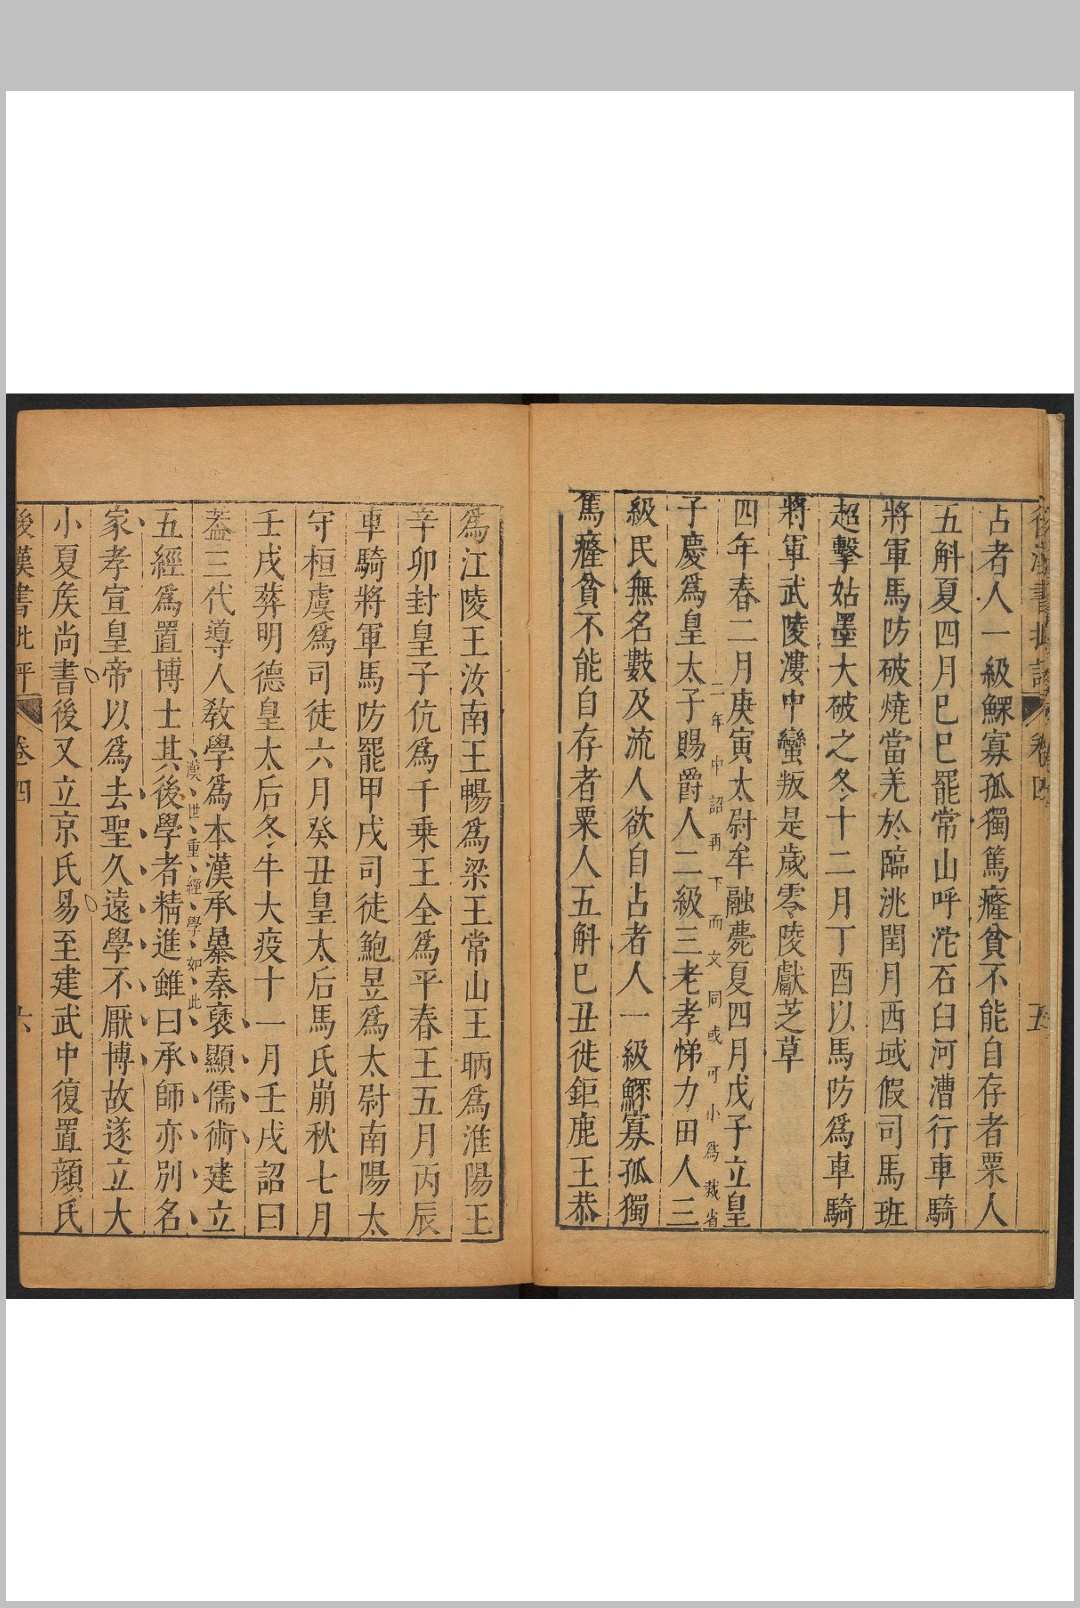 後漢書批評 卷四 五
占者人一級鰥寡孤獨篤癃貧不能自存者粟人
五斛夏四月巳巳罷常山呼沱石臼河漕行車騎
將軍馬防破燒當羌於臨洮閏月西域假司馬班
超擊姑墨大破之冬十二月丁酉以馬防爲車騎
將軍武陵漊中蠻叛是歲零陵獻芝草
四年春二月庚寅太尉牟融薨夏四月戊子立皇
二年中詔再下而文同或可小爲裁省
子慶爲皇太子賜爵人二級三老孝悌力田人三
級民無名數及流人欲自占者人一級鰥寡孤獨
篤癃貧不能自存者粟人五斛巳丑徙鉅鹿王恭
爲江陵王汝南王暢爲梁王常山王昞爲淮陽王
辛卯封皇子伉爲千乗王全爲平春王五月丙辰
車騎將軍馬防罷甲戌司徒鮑昱爲太尉南陽太
守桓虞爲司徒六月癸丑皇太后馬氏崩秋七月
壬戌葬明德皇太后冬牛大疫十一月壬戌詔曰
葢三代導人教學爲本漢承㬥秦襃顯儒術建立
漢世重經學如此
五經爲置博士其後學者精進雖曰承師亦別名
家孝宣皇帝以爲去聖久遠學不厭博故遂立大
小夏矦尚書後又立京氏易至建武中復置顏氏
後漢書批評 卷四 六